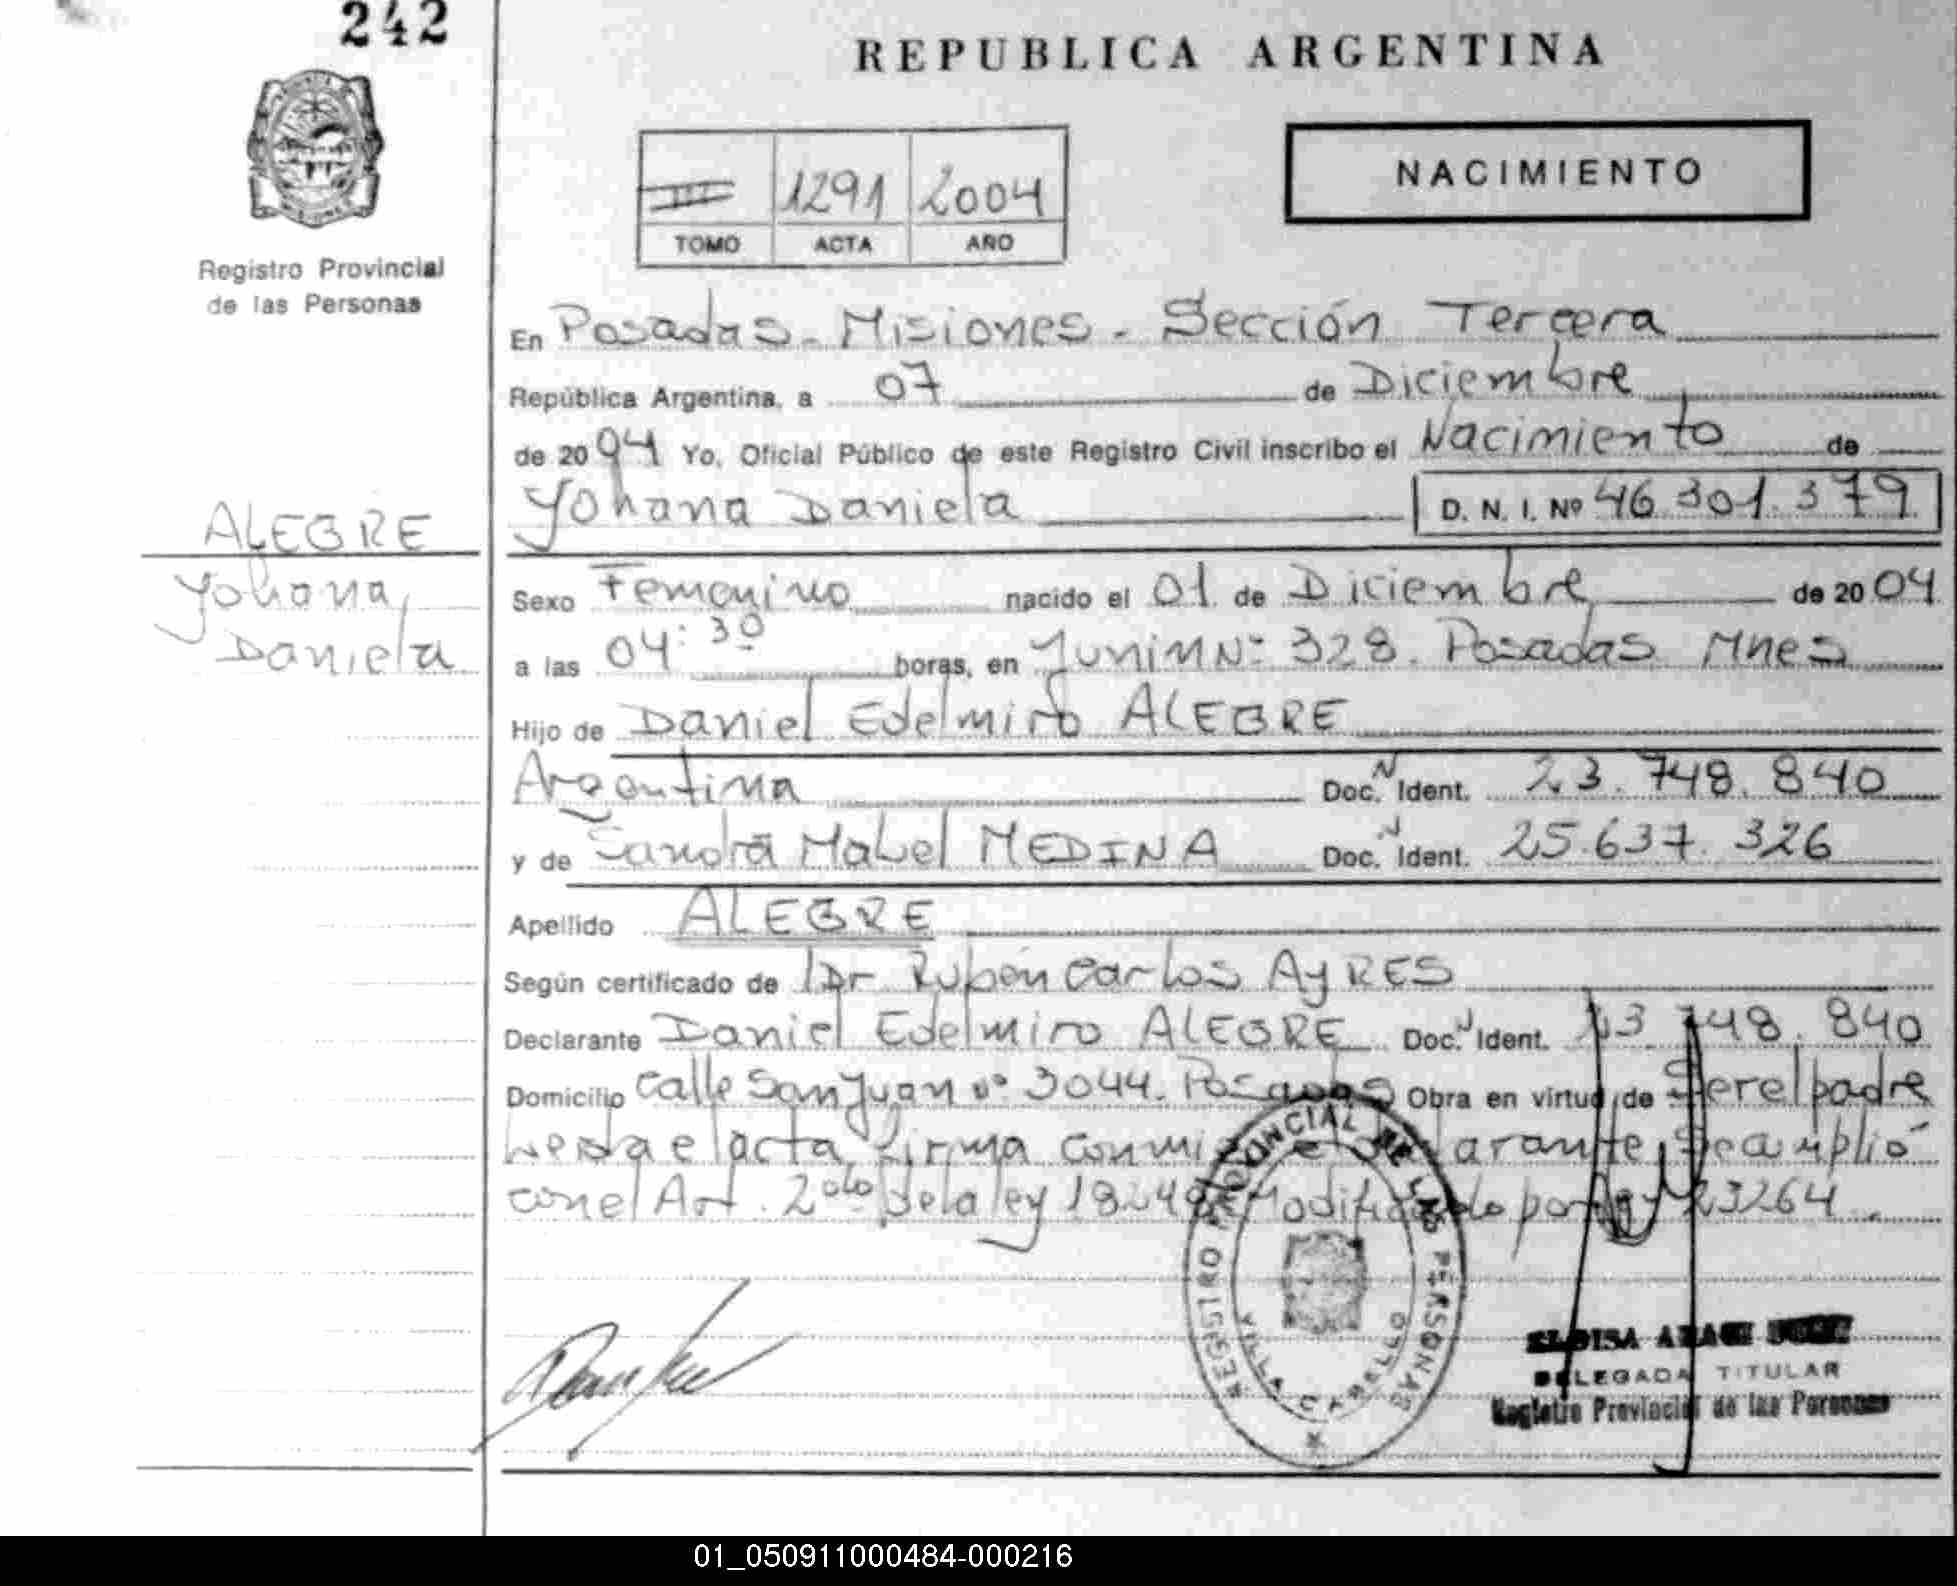 242
REPUBLICA ARGENTINA
NACIMIENTO
1291 2004
TOMO ACTA AÑO
Registro Provincial
de las Personas
En Posadas - Misiones - Sección Tercera
República Argentina, a 07 de Diciembre
de 2004 Yo, Oficial Público de este Registro Civil inscribo el Nacimiento de
Yohana Daniela D. N. I. Nº 46.301.379
ALEGRE
Yohana,
Daniela
Sexo Femenino nacido el 01 de Diciembre de 2004
a las 04:30 horas, en Junin Nº 328. Posadas Mnes
Hijo de Daniel Edelmiro ALEGRE
Argentina Doc. N Ident. 23.748.840
y de Sandra Mabel MEDINA Doc. N Ident. 25.637.326
Apellido ALEGRE
Según certificado de Dr Rubén Carlos AyRES
Declarante Daniel Edelmiro ALEGRE Doc. N Ident. 23.748.840
Domicilio Calle San Juan Nº 3044. Posadas Obra en virtud de Ser el padre
el acta, firma conmigo declarante Se cumplió
con el Art. 2 de la ley Modificado por 23264.
REGISTRO PROVINCIAL DE LAS PERSONAS
VILLA CABELLO
ELOISA
DELEGADA TITULAR
Registro Provincial de las Personas
01_050911000484-000216